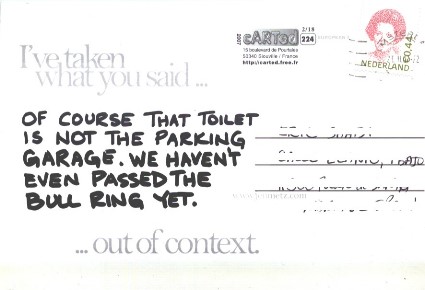 I've taken
what you said ...
OF COURSE THAT TOILET
IS NOT THE PARKING
GARAGE. WE HAVEN'T
EVEN PASSED THE
BULL RING YET.
... out of context.
2007
cARTed
2/18
224
15 boulevard de Pourtales
50340 Siouville / France
http://carted.free.fr
NEDERLAND €0,44